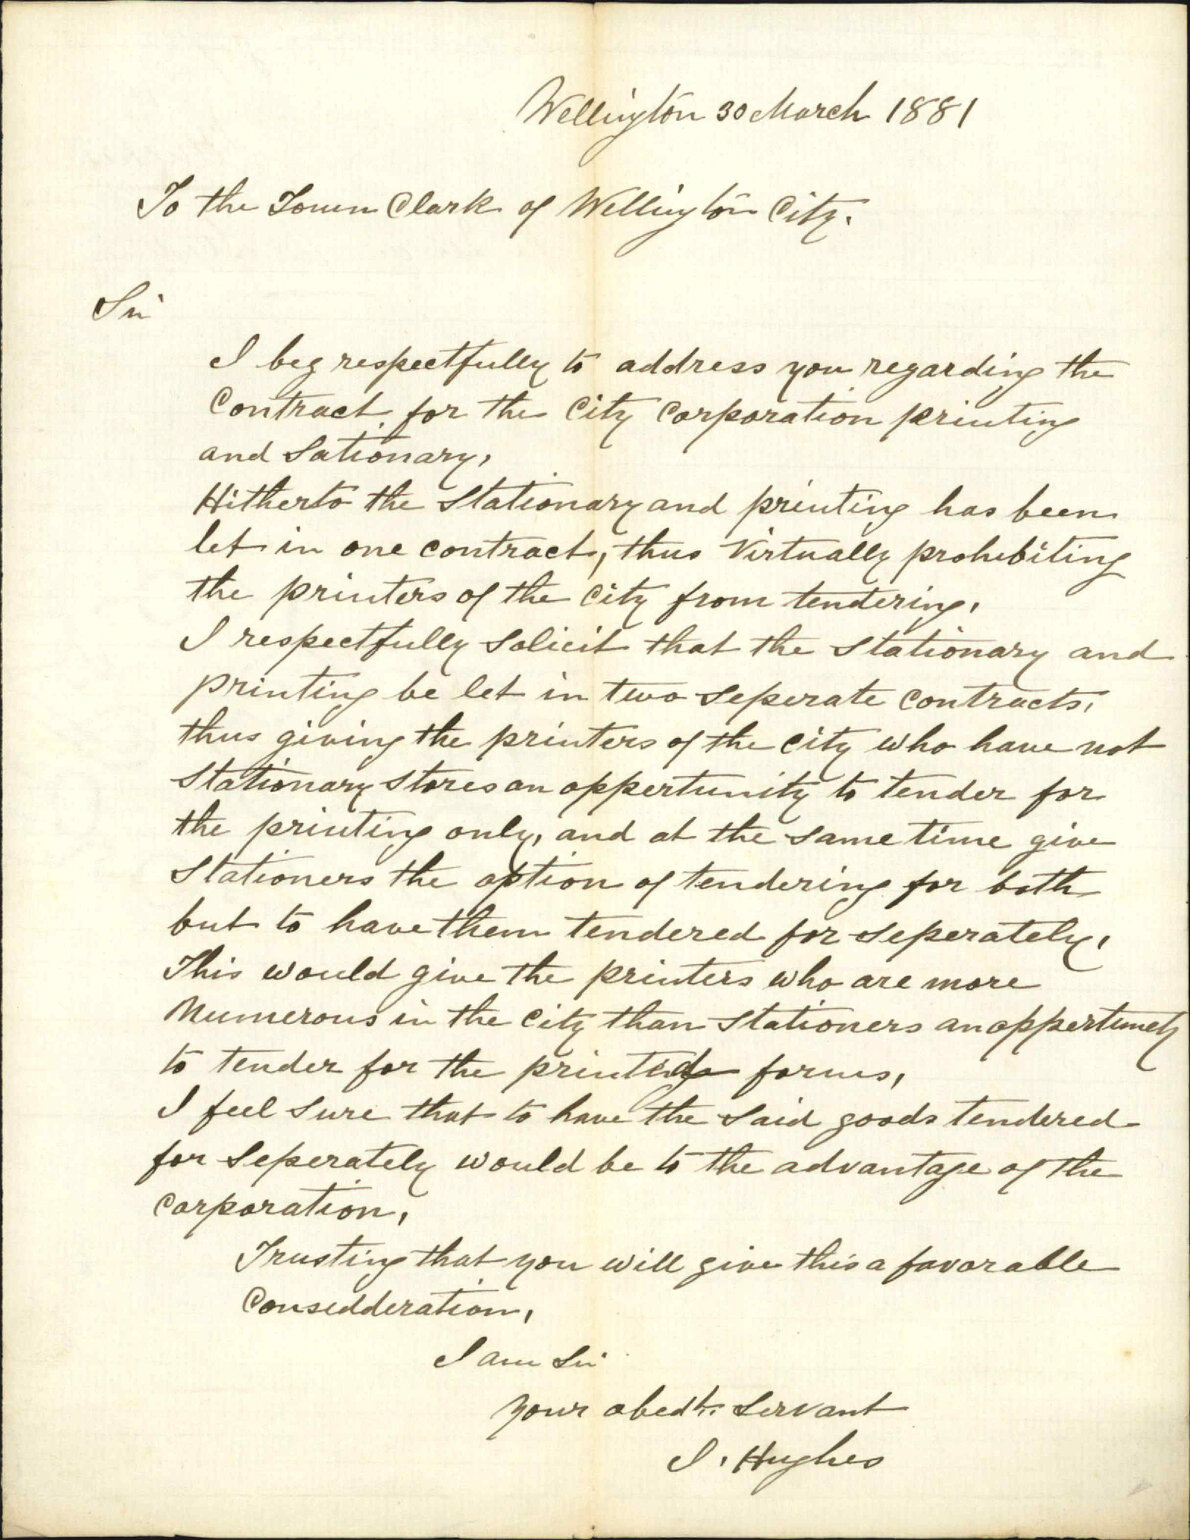 Wellington 30 March 1881
To the Town Clark of Wellington City.
Sir
I beg respectfully to address you regarding the
Contract for the City Corporation printing
and Sationary,
Hitherto the Stationary and printing has been
let in one contract, thus Virtually prohibiting
the printers of the City from tendering,
I respectfully Solicit that the Stationary and
printing be let in two Seperate Contracts,
thus giving the printers of the City who have not
Stationary Stores an oppertunity to tender for
the printing only, and at the same time give
Stationers the option of tendering for both
but to have them tendered for seperately,
This would give the printers who are more
Numerous in the City than Stationers an oppertunety
to tender for the printed forms,
I feel Sure that to have the Said goods tendered
for Seperately would be to the advantage of the
Corporation,
Trusting that you will give this a favorable
Consedderation,
I am Sir
Your obedt. Servant
J. Hughes